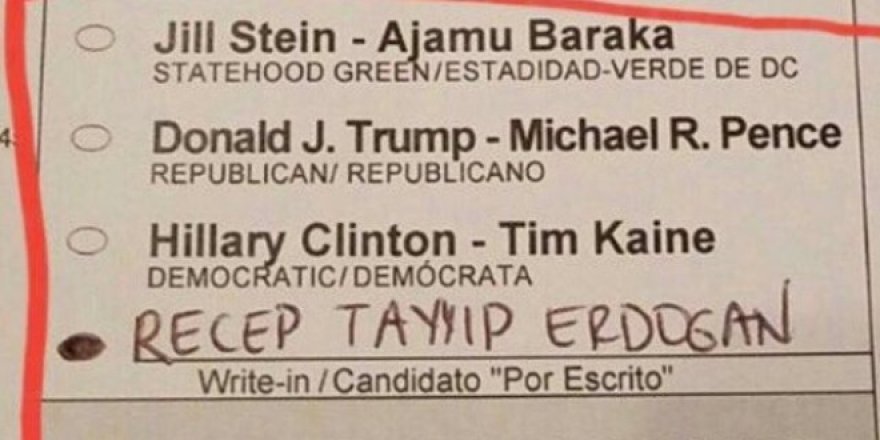 Jill Stein - Ajamu Baraka
STATEHOOD GREEN/ESTADIDAD-VERDE DE DC
4
Donald J. Trump - Michael R. Pence
REPUBLICAN/ REPUBLICANO
Hillary Clinton - Tim Kaine
DEMOCRATIC/DEMÓCRATA
RECEP TAYYIP ERDOGAN
Write-in / Candidato "Por Escrito"